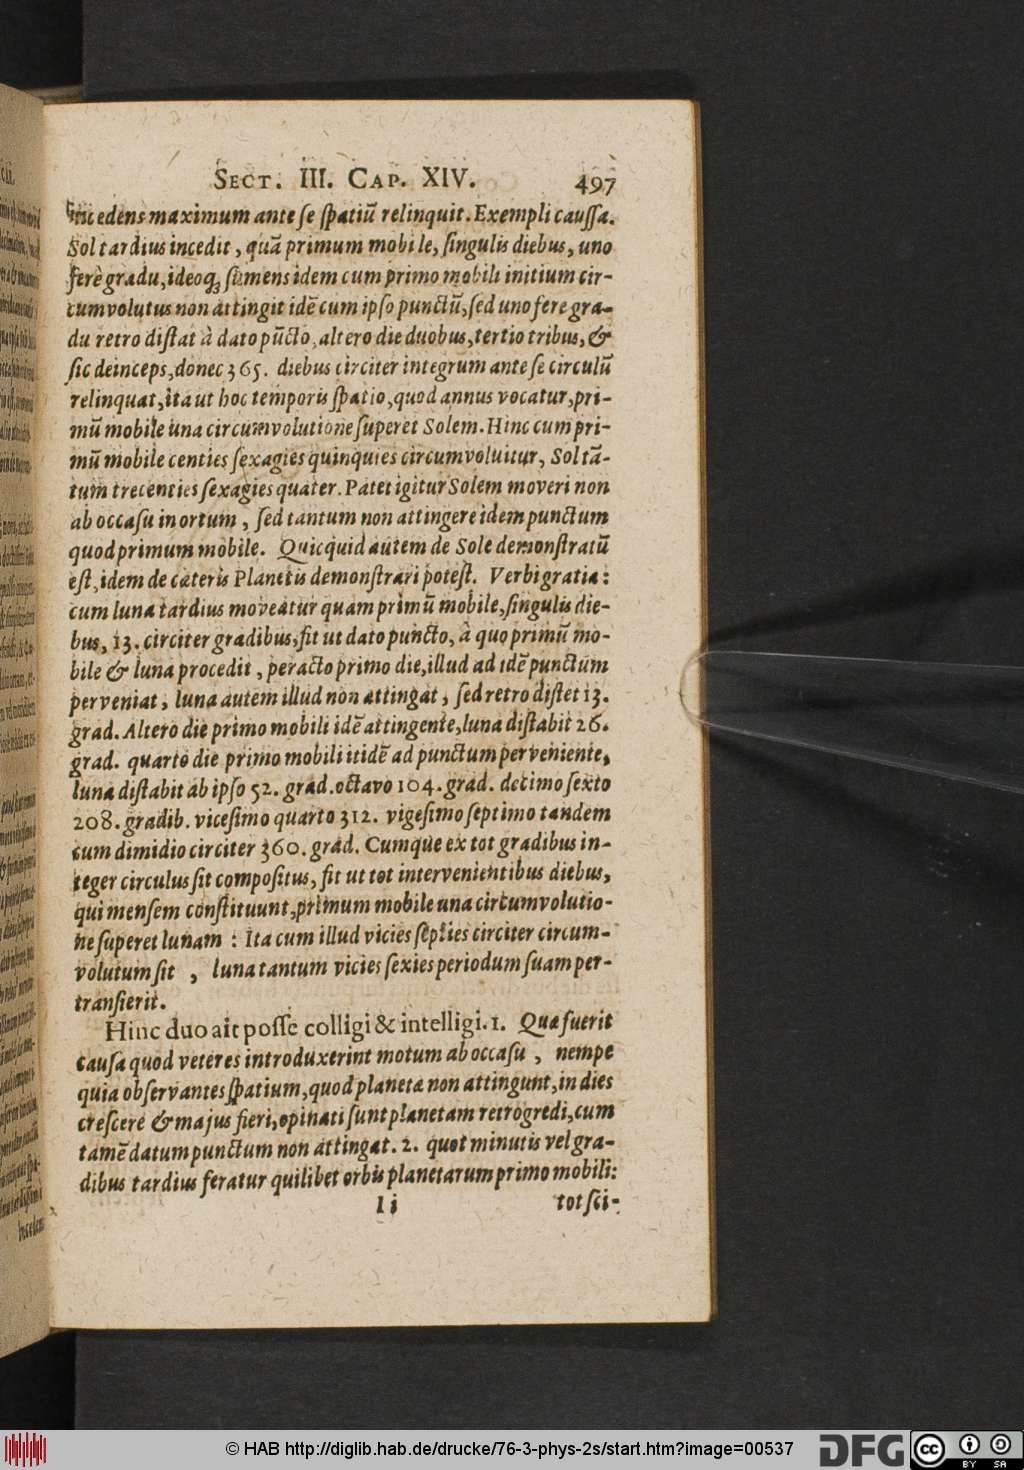 SECT. III. CAP. XIV. 497
incedens maximum ante se spatiũ relinquit. Exempli caussa.
Sol tardius incedit, quã primum mobile, singulis diebus, uno
ferè gradu, ideoq; sumens idem cum primo mobili initium cir-
cumvolutus non attingit idẽ cum ipso punctũ, sed uno fere gra-
du retro distat à dato pũcto, altero die duobus, tertio tribus, &
sic deinceps, donec 365. diebus circiter integrum ante se circulũ
relinquat, ita ut hoc temporis spatio, quod annus vocatur, pri-
mũ mobile una circumvolutione superet Solem. Hinc cum pri-
mũ mobile centies sexagies quinquies circumvoluitur, Sol tã-
tum trecenties sexagies quater. Patet igitur Solem moveri non
ab occasu in ortum, sed tantum non attingere idem punctum
quod primum mobile. Quicquid autem de Sole demonstratũ
est, idem de cæteris Planetis demonstrari potest. Verbi gratia:
cum luna tardius moveatur quam primũ mobile, singulis die-
bus, 13. circiter gradibus, fit ut dato puncto, à quo primũ mo-
bile & luna procedit, peracto primo die, illud ad idẽ punctum
perveniat, luna autem illud non attingat, sed retro distet 13.
grad. Altero die primo mobili idẽ attingente, luna distabit 26.
grad. quarto die primo mobili itidẽ ad punctum perveniente,
luna distabit ab ipso 52. grad. octavo 104. grad. decimo sexto
208. gradib. vicesimo quarto 312. vigesimo septimo tandem
cum dimidio circiter 360. grad. Cumque ex tot gradibus in-
teger circulus sit compositus, fit ut tot intervenientibus diebus,
qui mensem constituunt, primum mobile una circumvolutio-
ne superet lunam : Ita cum illud vicies septies circiter circum-
volutum sit, luna tantum vicies sexies periodum suam per-
transierit.
Hinc duo ait posse colligi & intelligi. 1. Quæ fuerit
causa quod veteres introduxerint motum ab occasu, nempe
quia observantes spatium, quod planetæ non attingunt, in dies
crescere & majus fieri, opinati sunt planetam retrogredi, cum
tamẽ datum punctum non attingat. 2. quot minutis vel gra-
dibus tardius feratur quilibet orbis planetarum primo mobili:
Ii tot sci-
© HAB http://diglib.hab.de/drucke/76-3-phys-2s/start.htm?image=00537
DFG cc BY SA